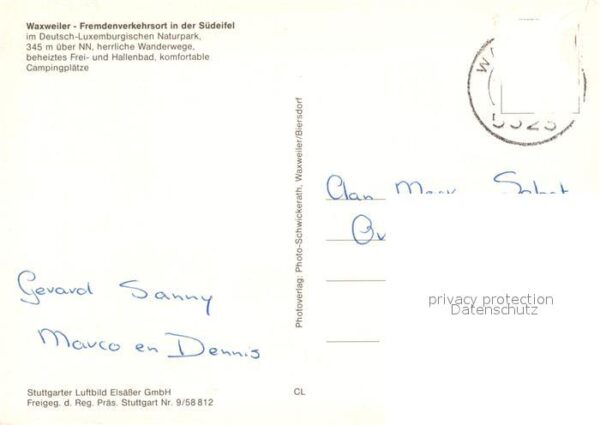 Waxweiler - Fremdenverkehrsort in der Südeifel
im Deutsch-Luxemburgischen Naturpark,
345 m über NN, herrliche Wanderwege,
beheiztes Frei- und Hallenbad, komfortable
Campingplätze
Gerard Sanny
Marco en Dennis
Stuttgarter Luftbild Elsäßer GmbH
Freigeg. d. Reg. Präs. Stuttgart Nr. 9/58 812
Photoverlag: Photo-Schwickerath, Waxweiler/Biersdorf
CL
privacy protection
Datenschutz